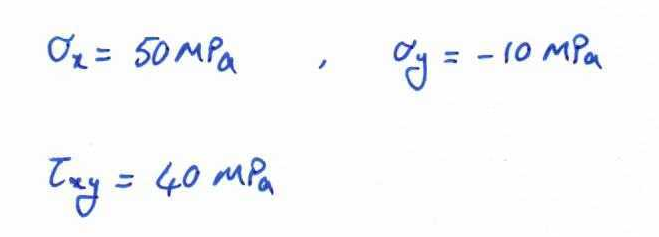 σx = 50 MPa , σy = -10 MPa
τxy = 40 MPa